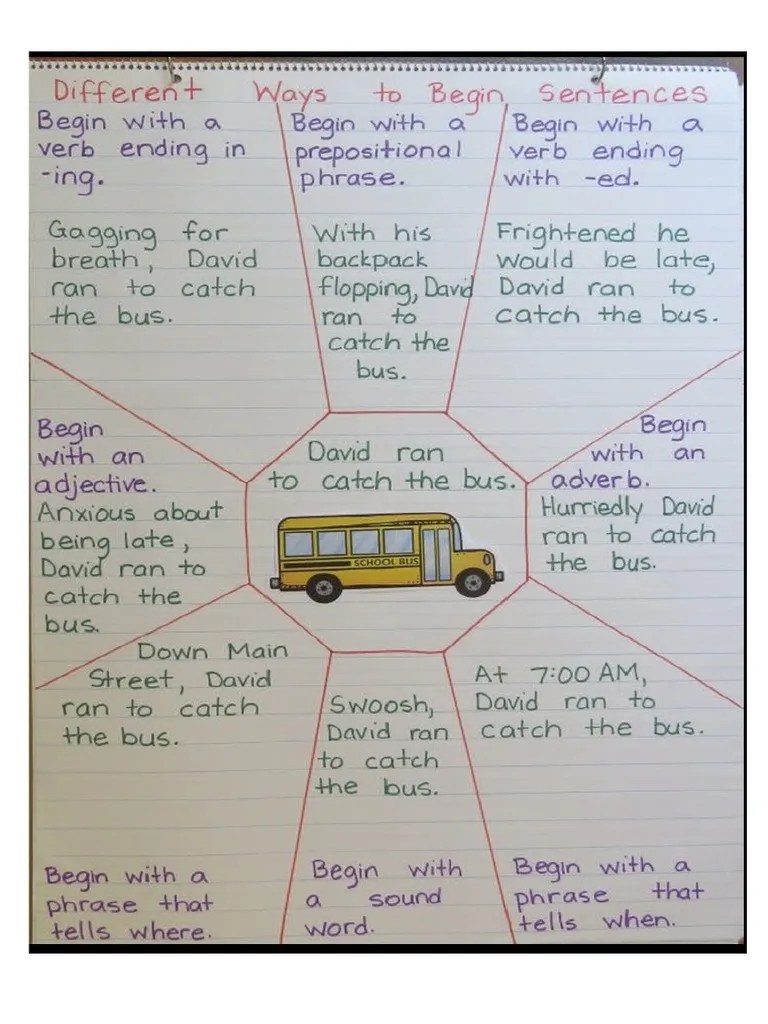 Different Ways to Begin Sentences
Begin with a
verb ending in
-ing.
Gagging for
breath, David
ran to catch
the bus.
Begin with a
prepositional
phrase.
With his
backpack
flopping, David
ran to
catch the
bus.
Begin with a
verb ending
with -ed.
Frightened he
would be late,
David ran to
catch the bus.
Begin
with an
adjective.
Anxious about
being late,
David ran to
catch the
bus.
David ran
to catch the bus.
SCHOOL BUS
Begin
with an
adverb.
Hurriedly David
ran to catch
the bus.
Down Main
Street, David
ran to catch
the bus.
Begin with a
phrase that
tells where.
Swoosh,
David ran
to catch
the bus.
Begin with
a sound
word.
At 7:00 AM,
David ran to
catch the bus.
Begin with a
phrase that
tells when.